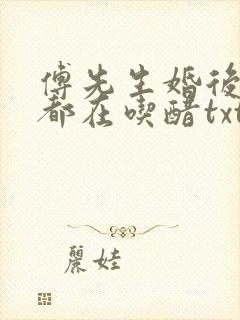 傅先生婚後
都在喫醋txt
麗娃